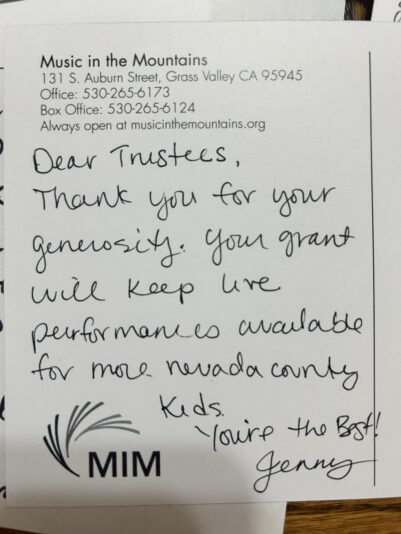 Music in the Mountains
131 S. Auburn Street, Grass Valley CA 95945
Office: 530-265-6173
Box Office: 530-265-6124
Always open at musicinthemountains.org
Dear Trustees,
Thank you for your
generosity. Your grant
will keep live
performances available
for more nevada county
kids.
You're the Best!
Jenny
MIM